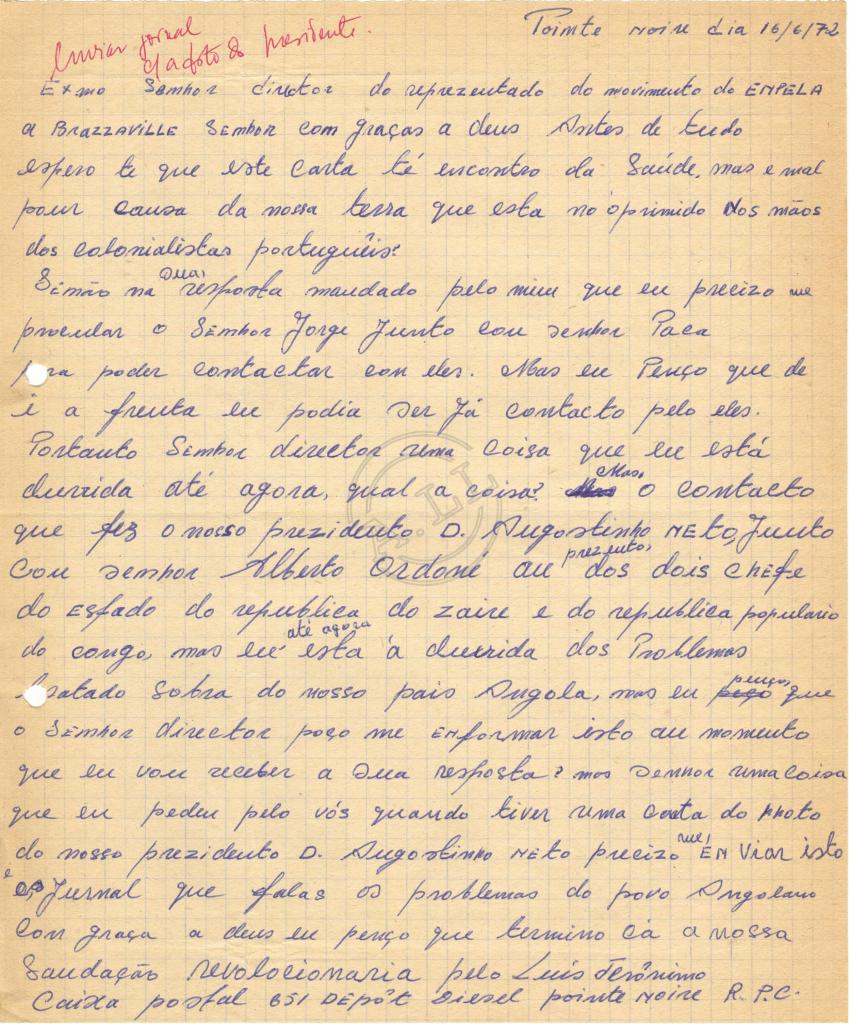 Pointe Noire dia 16/6/72
Enviar jornal
c/ a foto do presidente.
Exmo Senhor director do reprezentado do movimento do ENPELA
a BRAZZAVILLE Senhor com graças a deus Antes de tudo
espero te que este carta té encontro da Saúde, mas e mal
pour causa da nossa terra que esta no oprimido Nos mãos
dos colonialistas portuguêis?
Simão na Sua, resposta mandado pelo mim que eu precizo me
procular o Senhor Jorge Junto con senhor Paca
para poder contactar con eles. Mas eu Penço que de
i a frenta eu podia ser Já contacto pelo eles.
Portanto Senhor director uma coisa que eu está
duvida até agora, qual a coisa? Mas, o contacto
que fez o nosso prezidento D. Angostinho NETO, Junto
Con senhor Alberto Ordoné au prezento, dos dois chefe
do Esfado do republica do zaire e do republica populario
do congo, mas eu até agora esta à duvida dos Problemas
tratado Sobra do nosso pais Angola, mas eu penço, que
o Senhor director poço me ENformar isto au momento
que eu vou receber a Sua resposta? mas Senhor uma coisa
que eu peden pelo vós quando tiver uma carta do Photo
do nosso prezidento D. Angostinho NETO precizo me, EN Viar isto
e Jurnal que falas os problemas do povo Angolano
Con graça a deus eu penço que termino cá a nossa
Saudação revolocionaria pelo Luís Jerónimo
Caixa postal 651 DEPôt Diesel pointe Noire R.P.C.